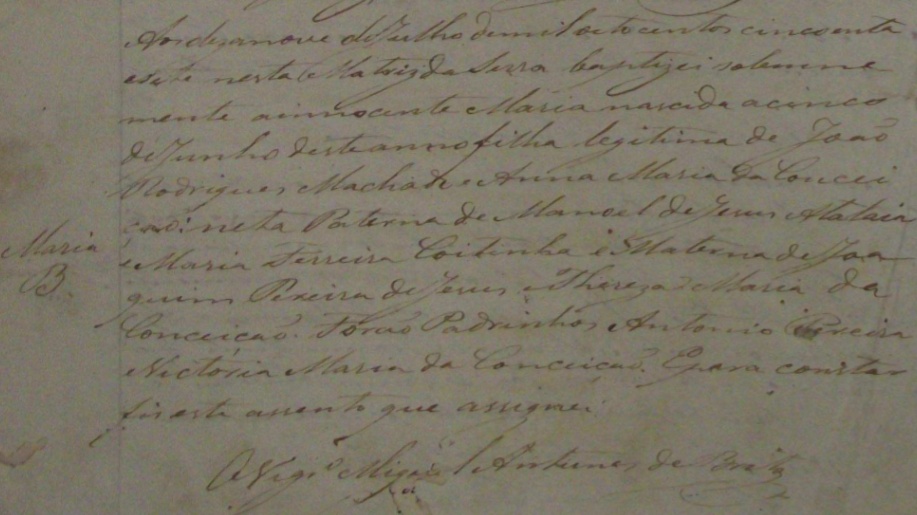 Aos desanove de Julho de mil oito centos cincoenta
e sete nesta Matriz da Serra baptizei solemne
mente a innocente Maria nascida a cinco
de Junho deste anno filha legitima de João
Rodrigues Machado e Anna Maria da Concei
ção: neta Paterna de Manoel de Jesus Atalaia
e Maria Ferreira Coitinha e Materna de Joa
Maria
B
quim Pereira de Jesus e Thereza Maria da
Conceicão. Forão Padrinhos Antonio Pereira
Victória Maria da Conceicão. E para constar
fis este assento que assignei.
O Vigr.º Miguel Antunes de Brito